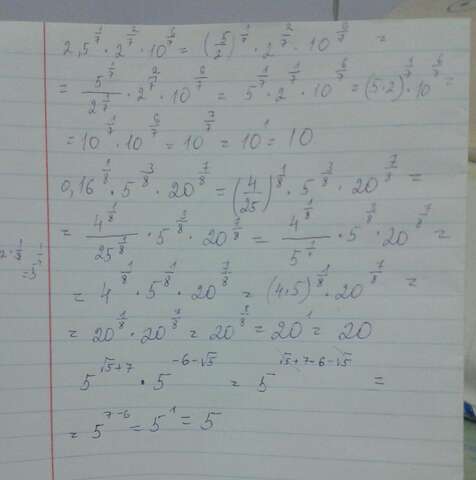 2,5^{1/7} · 2^{2/7} · 10^{6/7} = (5/2)^{1/7} · 2^{2/7} · 10^{6/7} =
= 5^{1/7} / 2^{1/7} · 2^{2/7} · 10^{6/7} = 5^{1/7} · 2^{1/7} · 10^{6/7} = (5·2)^{1/7} · 10^{6/7} =
= 10^{1/7} · 10^{6/7} = 10^{7/7} = 10^{1} = 10
0,16^{1/8} · 5^{3/8} · 20^{7/8} = (4/25)^{1/8} · 5^{3/8} · 20^{7/8} =
= 4^{1/8} / 25^{1/8} · 5^{3/8} · 20^{7/8} = 4^{1/8} / 5^{1/4} · 5^{3/8} · 20^{7/8} =
= 4^{1/8} · 5^{1/8} · 20^{7/8} = (4·5)^{1/8} · 20^{7/8} =
= 20^{1/8} · 20^{7/8} = 20^{8/8} = 20^{1} = 20
5^{√5+7} · 5^{-6-√5} = 5^{√5+7-6-√5} =
= 5^{7-6} = 5^{1} = 5